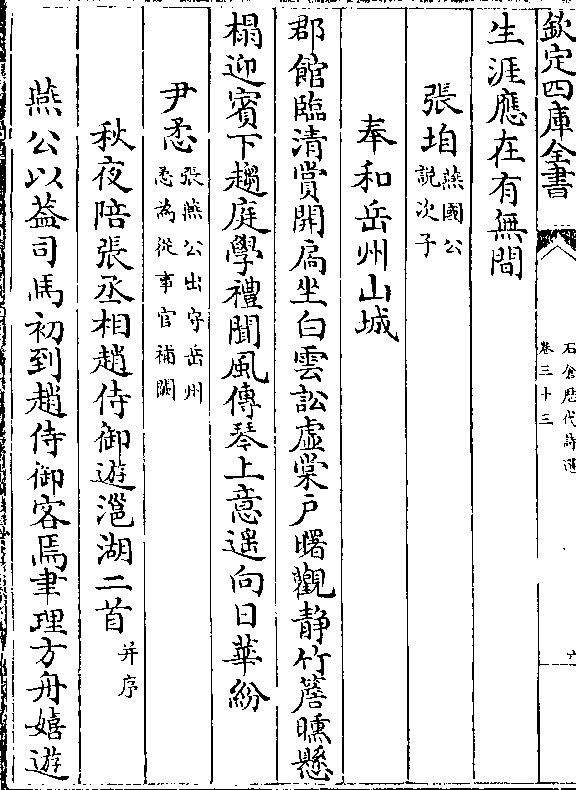 欽定四庫全書
石倉歷代詩選
卷三十三
生涯應在有無間
張垍 燕國公
說次子
奉和岳州山城
郡館臨清賞開扃坐白雲訟虛棠戶曙觀静竹簷曛懸
榻迎賓下趨庭學禮聞風傳琴上意遥向日華紛
尹懋 張燕公出守岳州
懋為從事官補闕
秋夜陪張丞相趙侍御遊㴩湖二首 并序
燕公以葢司馬初到趙侍御客焉聿理方舟嬉遊